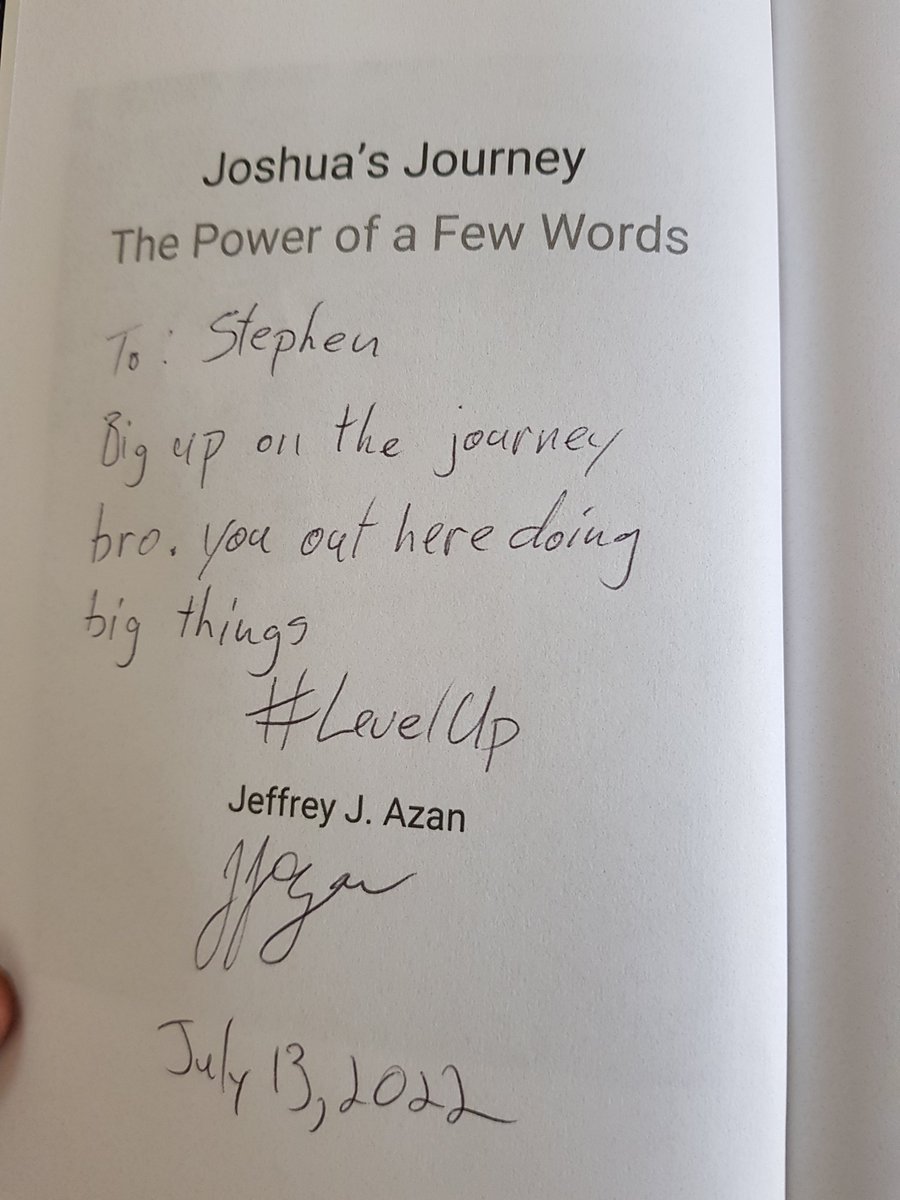 Joshua's Journey
The Power of a Few Words
To: Stephen
Big up on the journey
bro. you out here doing
big things
#LevelUp
Jeffrey J. Azan
JJAzan
July 13, 2022